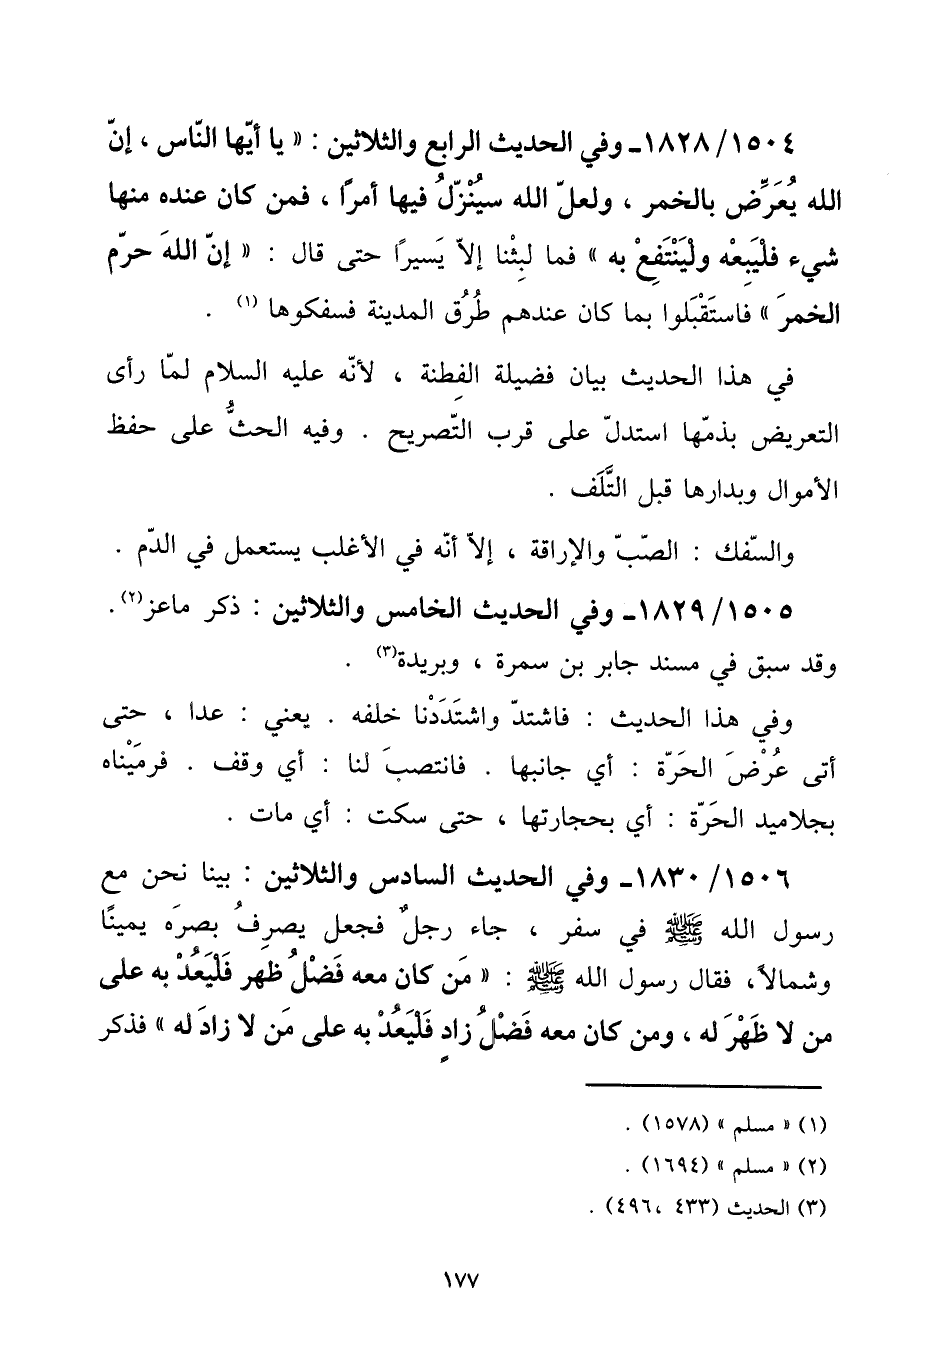 ١٨٢٨/١٥٠٤ـ وفي الحديث الرابع والثلاثين : « يا أيّها النّاس ، إنّ
الله يُعَرِّض بالخمر ، ولعلّ الله سيُنْزِّلُ فيها أمرًا ، فمن كان عنده منها
شيء فلْيَبِعْه ولْيَنْتَفِعْ به » فما لبِثْنا إلاّ يَسيرًا حتى قال : « إنّ اللهَ حرّم
الخمرَ » فاستَقْبَلوا بما كان عندهم طُرُق المدينة فسفكوها (١) .
في هذا الحديث بيان فضيلة الفِطنة ، لأنّه عليه السلام لمّا رأى
التعريض بذمّها استدلّ على قرب التّصريح . وفيه الحثُّ على حفظ
الأموال وبدارها قبل التَّلَف .
والسّفك : الصّبّ والإراقة ، إلاّ أنّه في الأغلب يستعمل في الدّم .
١٨٢٩/١٥٠٥ـ وفي الحديث الخامس والثلاثين : ذكر ماعز(٢).
وقد سبق في مسند جابر بن سمرة ، وبريدة(٣) .
وفي هذا الحديث : فاشتدّ واشتَدَدْنا خلفه . يعني : عدا ، حتى
أتى عُرْضَ الحَرّة : أي جانبها . فانتصبَ لنا : أي وقف . فرمَيْناه
بجلاميد الحَرّة : أي بحجارتها ، حتى سكت : أي مات .
١٨٣٠/١٥٠٦ـ وفي الحديث السادس والثلاثين : بينا نحن مع
رسول الله ﷺ في سفر ، جاء رجلٌ فجعل يصرِفُ بصرَه يمينًا
وشمالاً، فقال رسول الله ﷺ : « مَن كان معه فَضْلُ ظهر فَلْيَعُدْ به على
من لا ظَهْرَ له ، ومن كان معه فَضْلُ زادٍ فَلْيَعُدْ به على مَن لا زادَ له » فذكر
(١) « مسلم » (١٥٧٨) .
(٢) « مسلم » (١٦٩٤) .
(٣) الحديث (٤٣٣ ، ٤٩٦) .
١٧٧